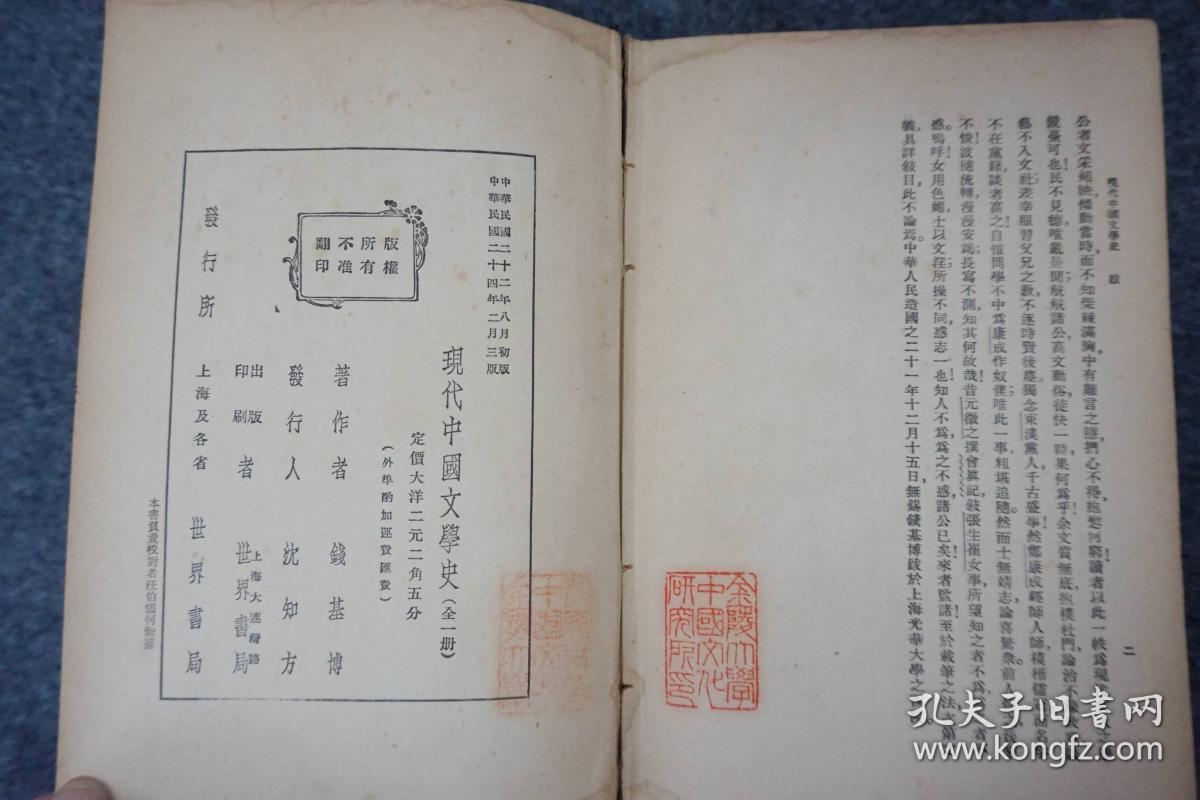 現代中國文學史 跋
二
公者文采炤映傾動當時而不知柴棘滿胸中有難言之隱捫心不得
讀者以此一
可也民不見德唯亂是聞兢兢諸公高文動俗徒快一時果何爲乎余文質無底抱樸杜門論治不
不入文社差幸服習父兄之敎不逐時賢後塵獨念東漢黨人千古盛事然鄭康成經師人師模楷儒
不在黨籍談者高之自惟問學不中爲康成作奴僕唯此一事粗堪追隨然而士無靖志論喜驚衆前人
不慢波隨流轉漫漫安竭長寫不測知其何故哉昔元微之撰會眞記敍張生崔女事所望知之者不爲
惑嗚呼女用色媚士以文淫所操不同惑志一也知人不爲爲之不惑諸公已矣來者監諸至於裁筆之法
義具詳敍目此不論焉中華人民造國之二十一年十二月十五日無錫錢基博跋於上海光華大學之
金陵大學
中國文化
研究所印
中華民國二十二年八月初版
中華民國二十四年二月三版
版權
所有
不准
翻印
現代中國文學史(全一册)
定價大洋二元二角五分
(外埠酌加運費匯費)
著作者 錢基博
發行人 沈知方
出版
印刷
者 世界書局
上海大連灣路
發行所 上海及各省 世界書局
本書負責校對者汪伯儒何
孔夫子旧书网
www.kongfz.com